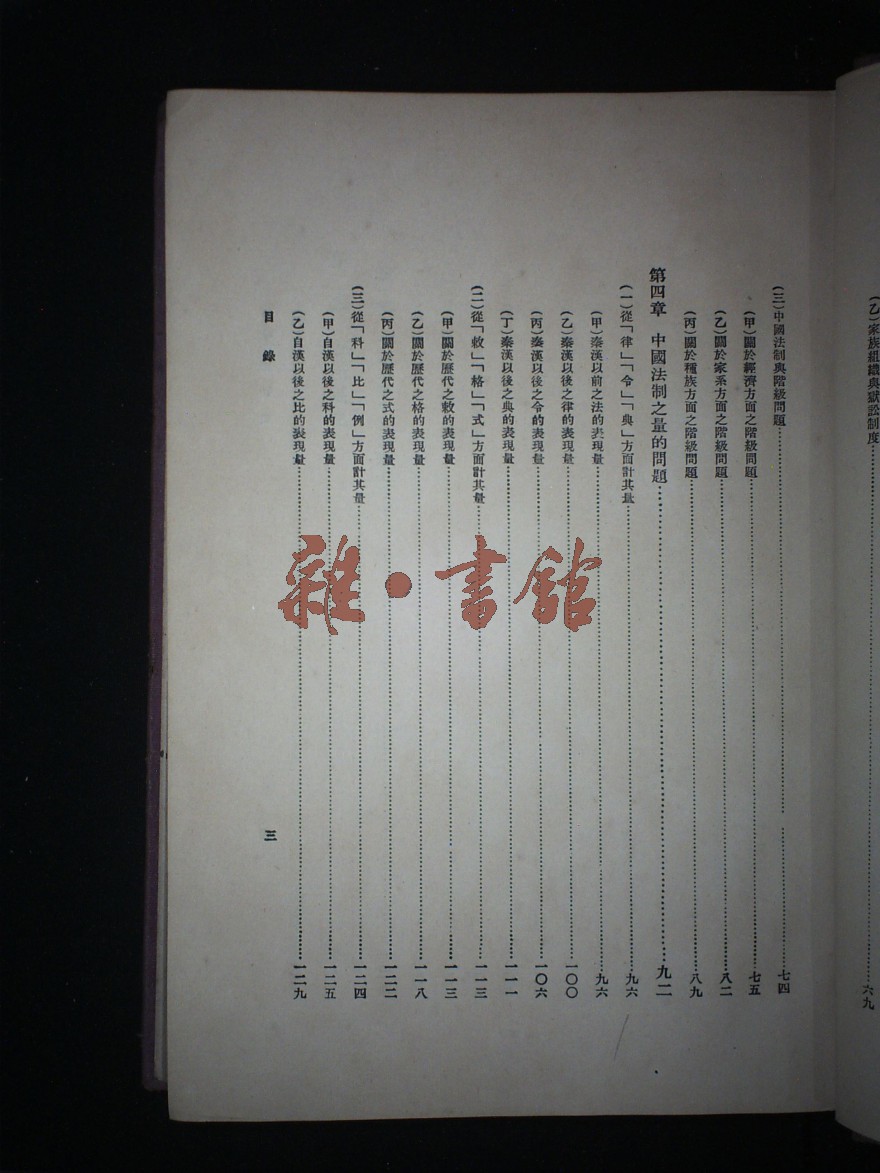 (乙)家族組織與獄訟制度……六九
(三)中國法制與階級問題……七四
(甲)關於經濟方面之階級問題……七五
(乙)關於家系方面之階級問題……八二
(丙)關於種族方面之階級問題……八九
第四章 中國法制之量的問題……九二
(一)從「律」「令」「典」方面計其量……九六
(甲)秦漢以前之法的表現量……九六
(乙)秦漢以後之律的表現量……一〇〇
(丙)秦漢以後之令的表現量……一〇六
(丁)秦漢以後之典的表現量……一一一
(二)從「敕」「格」「式」方面計其量……一一三
(甲)關於歷代之敕的表現量……一一三
(乙)關於歷代之格的表現量……一一八
(丙)關於歷代之式的表現量……一二二
(三)從「科」「比」「例」方面計其量……一二四
(甲)自漢以後之科的表現量……一二五
(乙)自漢以後之比的表現量……一二九
目錄 三
雜·書館